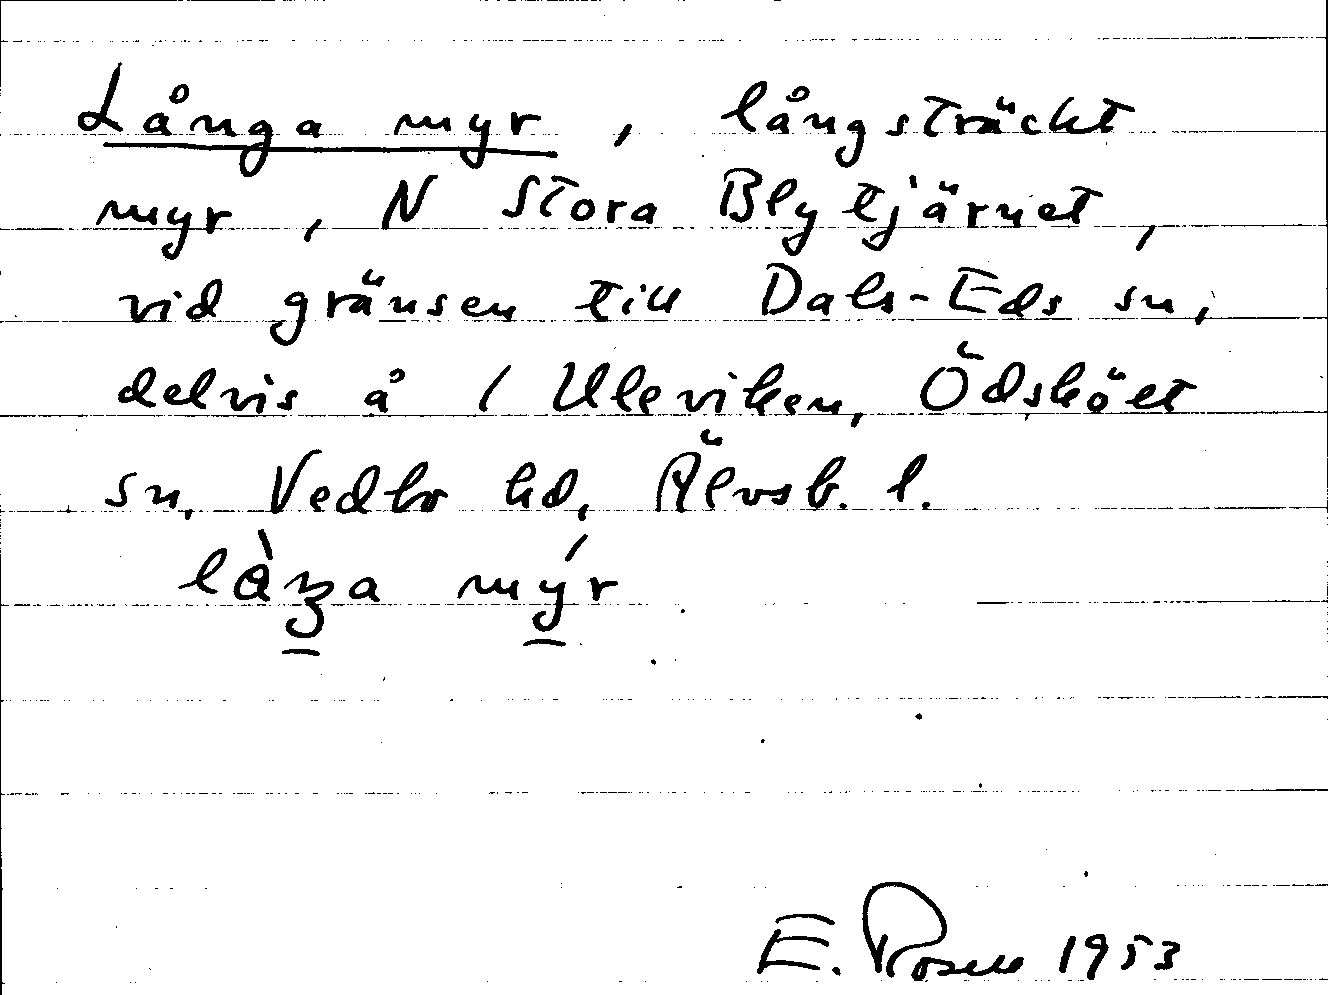 Långa myr, långsträckt
myr, N Stora Blytjärnet,
vid gränsen till Dals-Eds sn,
delvis å 1 Uleviken, Ödskölt
sn, Vedbo hd, Älvsb. l.
là̱ŋa mý̱r
E. Rosell 1953